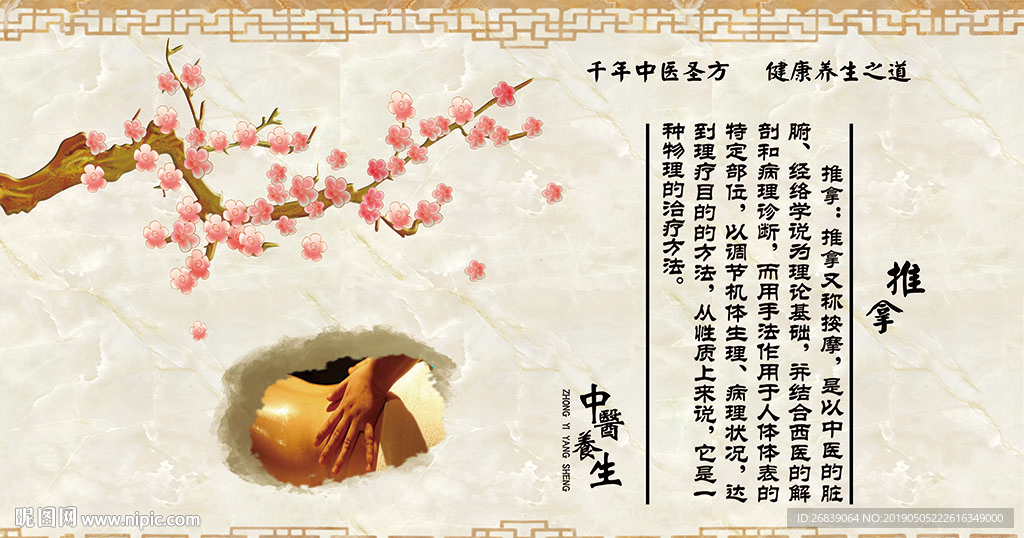 千年中医圣方 健康养生之道
推拿
推拿：推拿又称按摩，是以中医的脏
腑、经络学说为理论基础，并结合西医的解
剖和病理诊断，而用手法作用于人体体表的
特定部位，以调节机体生理、病理状况，达
到理疗目的的方法，从性质上来说，它是一
种物理的治疗方法。
中醫養生
ZHONG YI YANG SHENG
昵图网 www.nipic.com
ID:26839064 NO:20190505222616349000